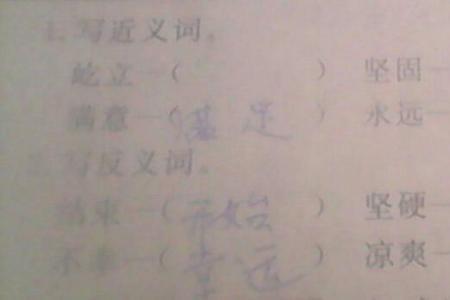 1.写近义词。
屹立—（ ） 坚固—
满意—（满足） 永远—
2.写反义词。
结束—（开始） 坚硬—
不幸—（幸运） 凉爽—